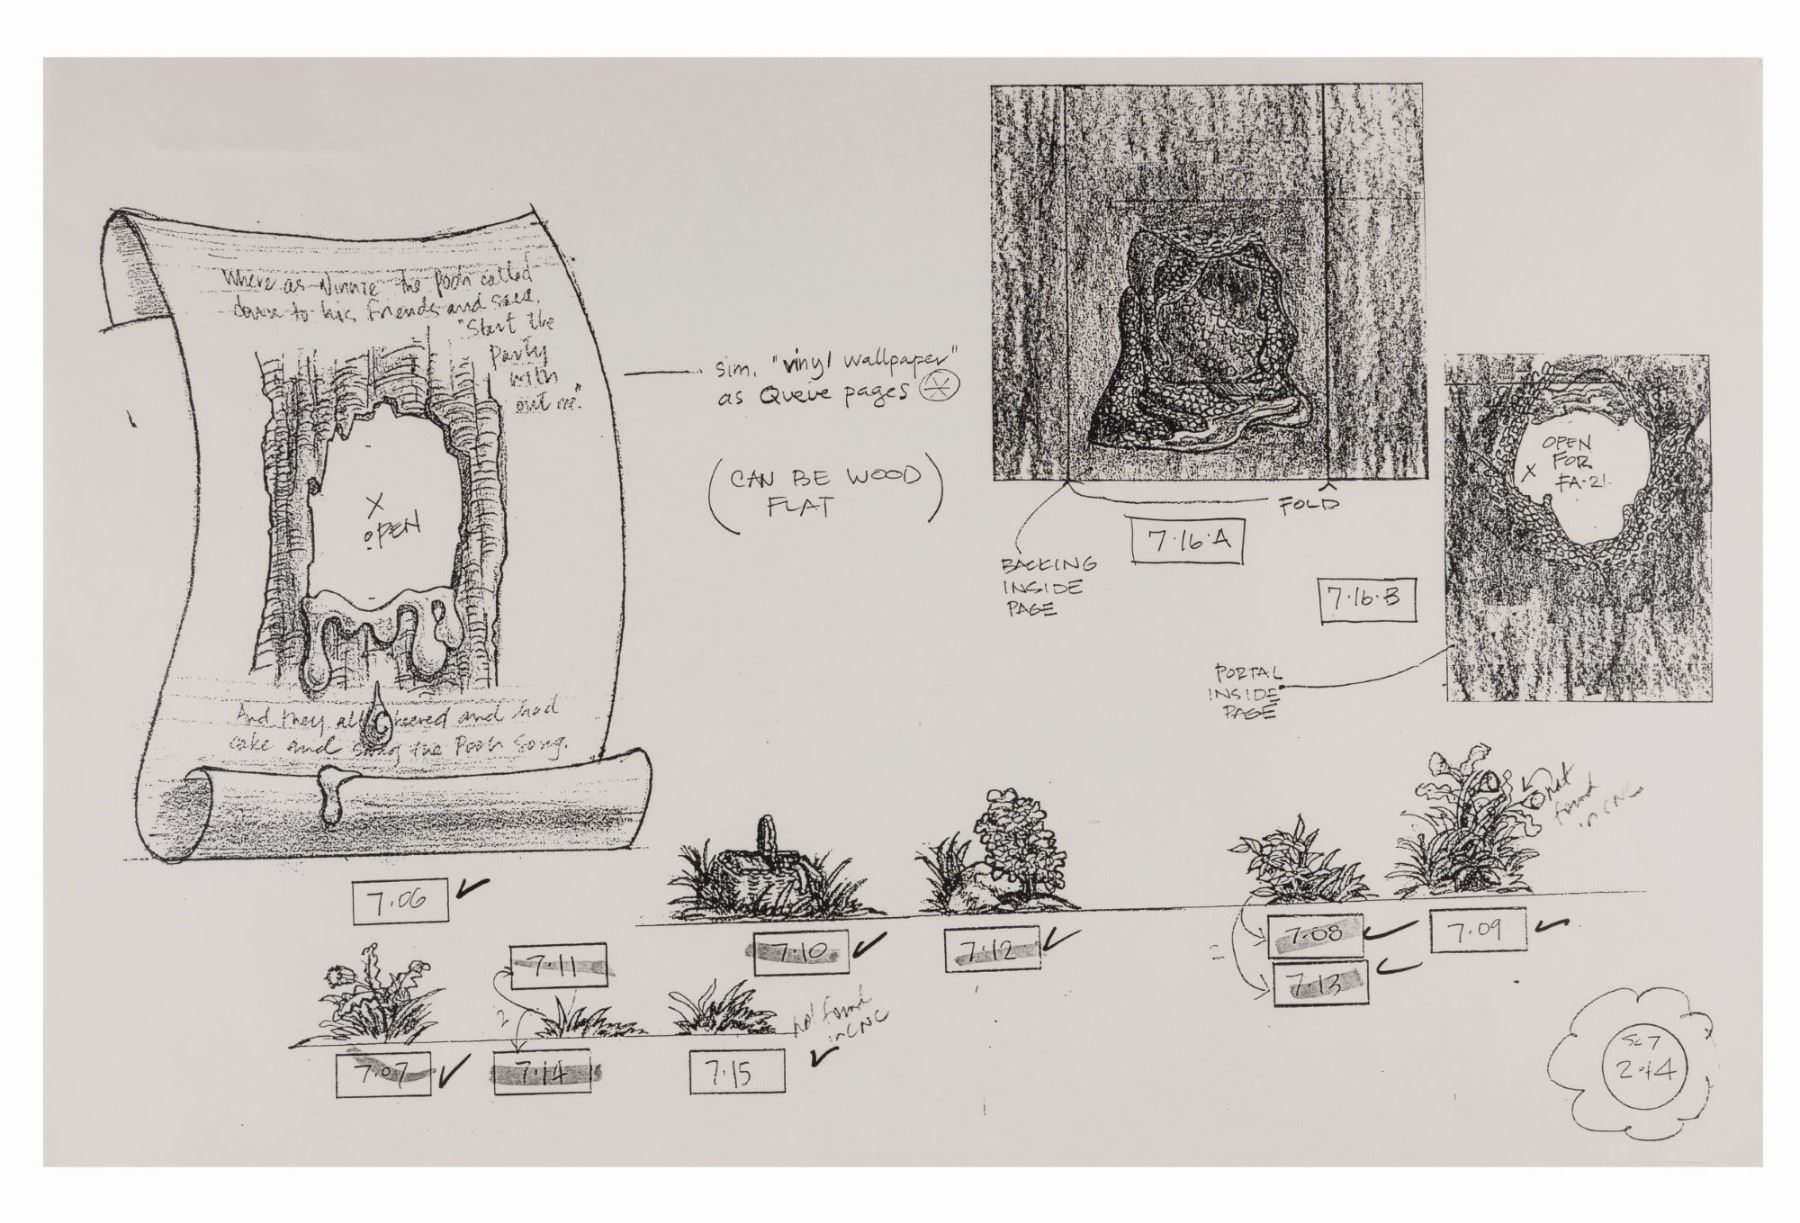 Where as Winnie the Pooh called
down to his friends and said,
"Start the
party
with
out me."
X
OPEN
And they all cheered and had
cake and sang the Pooh Song.
sim. "vinyl wallpaper"
as Queue pages
(CAN BE WOOD
FLAT)
BACKING
INSIDE
PAGE
FOLD
7.16.A
7.16.B
OPEN
FOR
X FA-21
PORTAL
INSIDE
PAGE
not
found
in CNC
7.06
7.10
7.12
7.08
7.09
7.13
7.11
2
7.07
7.14
7.15
not found
in CNC
Sc 7
2 of 4